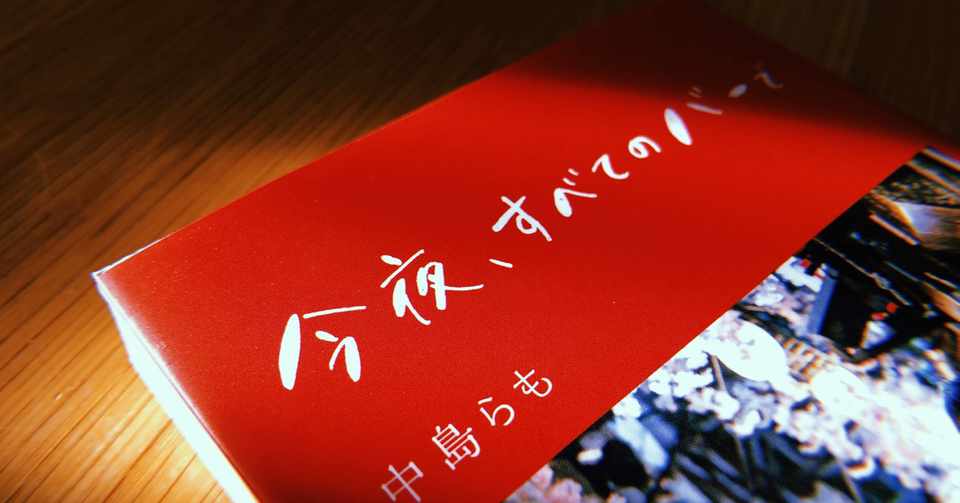 今夜、すべてのバーで
中島らも